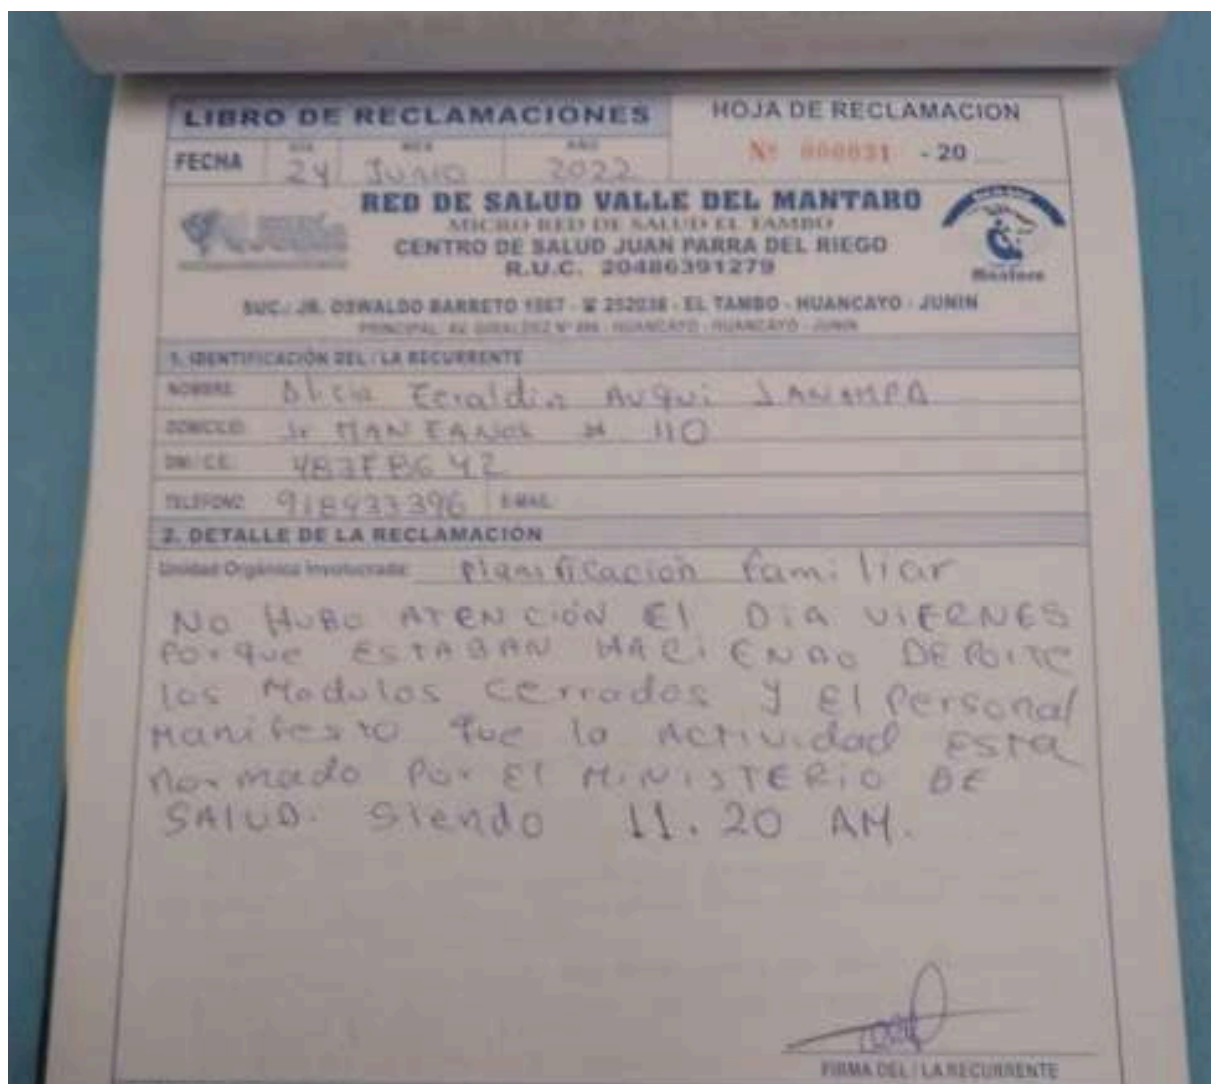 LIBRO DE RECLAMACIONES
HOJA DE RECLAMACION
FECHA
DIA
MES
AÑO
24 JUNIO 2022
Nº 000031 - 20
RED DE SALUD VALLE DEL MANTARO
MICRO RED DE SALUD EL TAMBO
CENTRO DE SALUD JUAN PARRA DEL RIEGO
R.U.C. 20486391279
Mantaro
SUC.: JR. OSWALDO BARRETO - 252038 - EL TAMBO - HUANCAYO - JUNIN
PRINCIPAL: AV. GIRALDEZ Nº - HUANCAYO - HUANCAYO - JUNIN
1. IDENTIFICACIÓN DEL / LA RECURRENTE
NOMBRE: Auqui JANAMPA
DOMICILIO: Jr 110
DNI / C.E.:
TELEFONO: E-MAIL:
2. DETALLE DE LA RECLAMACIÓN
Unidad Orgánica Involucrada: Planificación familiar
NO HUBO ATENCIÓN El DIA VIERNES
Porque ESTABAN HACIENDO DEPORTE
los Modulos cerrados y El Personal
Manifesto que la Actividad Esta
Normado Por El MINISTERIO DE
SALUD. Siendo 11.20 AM.
FIRMA DEL / LA RECURRENTE